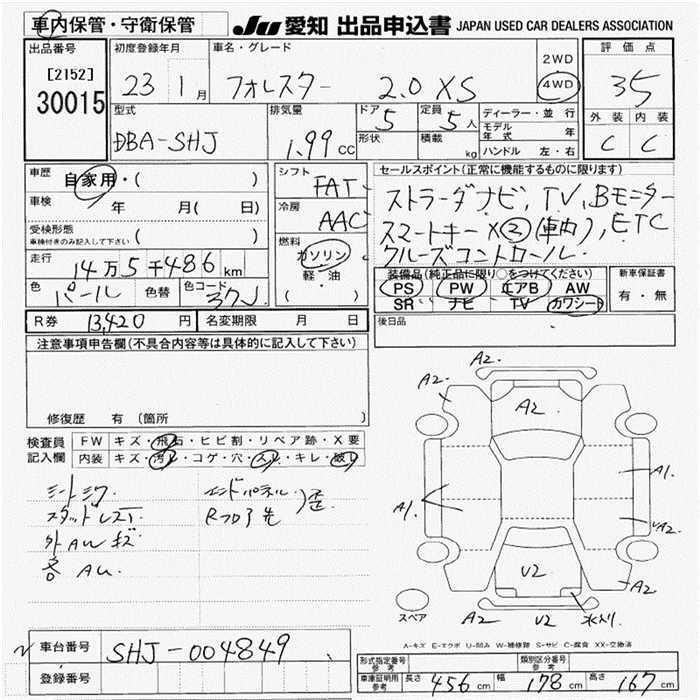 車内保管・守衛保管
JU 愛知 出品申込書 JAPAN USED CAR DEALERS ASSOCIATION
出品番号
[2152]
30015
初度登録年月
23 1月
車名・グレード
フォレスター 2.0 XS
2WD
4WD
評価点
35
外装 内装
C C
型式
DBA-SHJ
排気量
1.99 CC
ドア 5
形状
定員 5人
積載 kg
ディーラー・並行
モデル年式 年
ハンドル 左・右
車歴 自家用・( )
車検 年 月( 日)
受検形態
車検付きのみ記入して下さい ( )
走行 14万5千486km
色 パール 色替 色コード 37J
シフト FAT
冷房 AAC
燃料
ガソリン
軽・油
( )
セールスポイント(正常に機能するものに限ります)
ストラーダナビ、TV、Bモニター
スマートキー×②(車内)、ETC
クルーズコントロール
装備品(純正品に限り○をつけてください)
PS PW エアB AW
SR ナビ TV カワシート
新車保証書
有・無
R券 13,420円 名変期限 月 日
後日品
注意事項申告欄(不具合内容等は具体的に記入して下さい)
修復歴 有(箇所 )
検査員記入欄
FW キズ・飛石・ヒビ割・リペア跡・X要
内装 キズ・汚れ・コゲ・穴・スレ・キレ・破レ
スタッドレス
外AWキズ
エンドパネル
歪
A2
A2
A2
A1
A1
A2
U2
A2
A2 U2 水入り
スペア
A-キズ E-エクボ U-凹み W-補修跡 S-サビ C-腐食 XX-交換済
車台番号 SHJ-004849
登録番号
形式指定番号 参考
類別区分番号 参考
車庫証明用 参考
長さ 456cm 幅 178cm 高さ 167cm